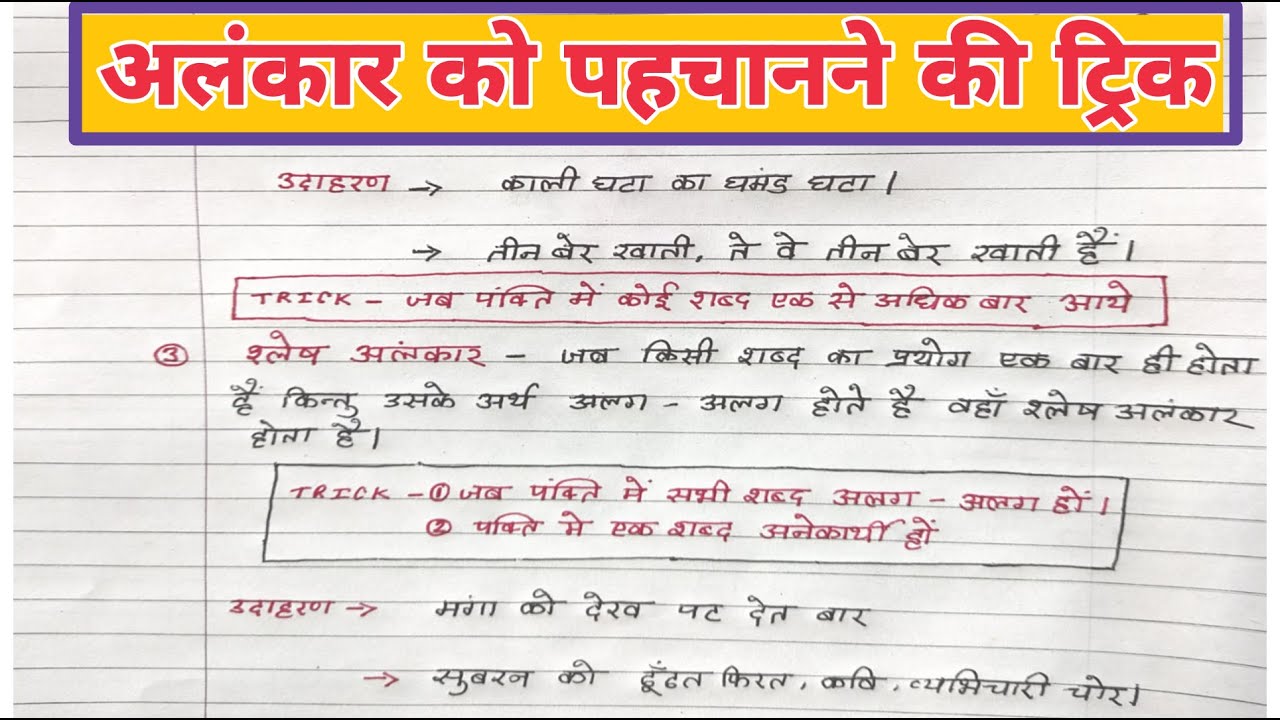 अलंकार को पहचानने की ट्रिक
उदाहरण → काली घटा का घमंड घटा।
→ तीन बेर खाती, ते वे तीन बेर खाती हैं।
TRICK - जब पंक्ति में कोई शब्द एक से अधिक बार आये
③ श्लेष अलंकार - जब किसी शब्द का प्रयोग एक बार ही होता
हैं किन्तु उसके अर्थ अलग - अलग होते है वहाँ श्लेष अलंकार
होता है।
TRICK - ① जब पंक्ति में सभी शब्द अलग - अलग हों।
② पंक्ति मे एक शब्द अनेकार्थी हों
उदाहरण → मंगा को देख पट देत बार
→ सुबरन को ढूँढत फिरत, कवि, व्यभिचारी चोर।